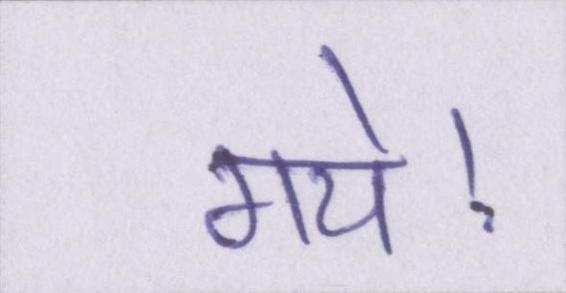 गये!